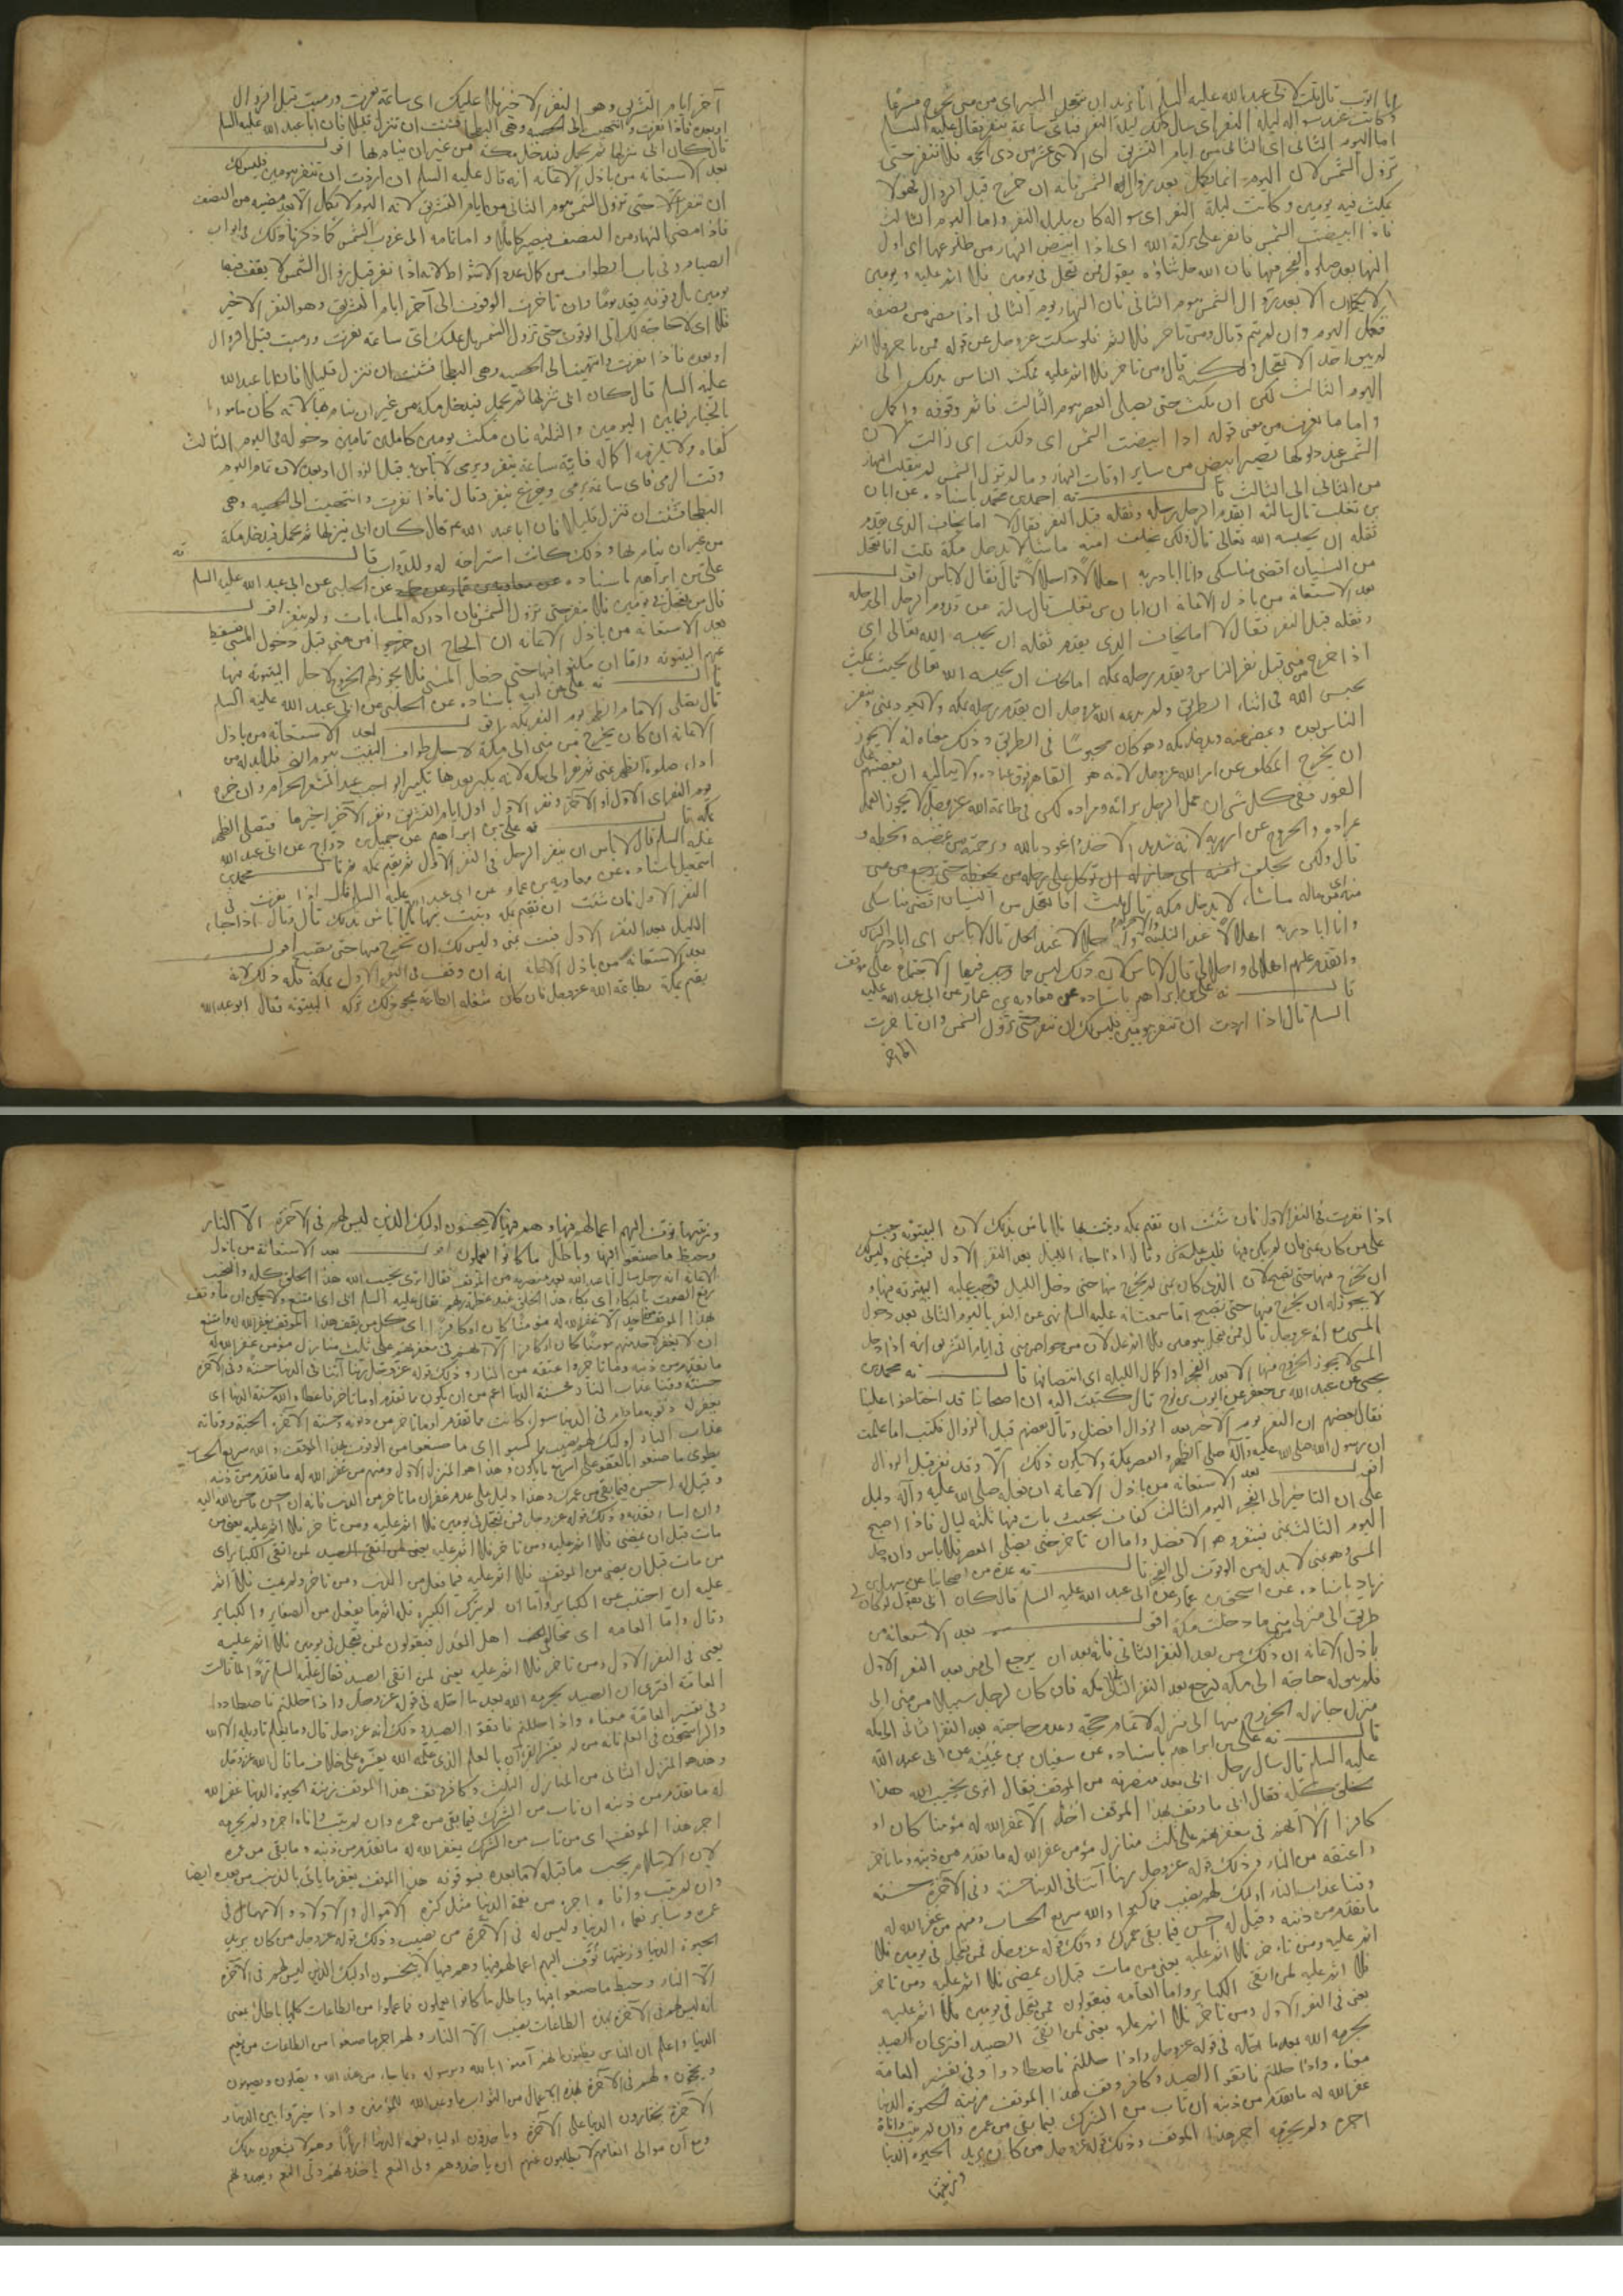 ابا ايوب قال قلت لابي عبد الله عليه السلم انا نريد ان نتعجل السير اي من منى نخرج مسرعا
وكانت عند سواله ليلة النفر اي سال عند ليلة النفر فباي ساعة ننفر فقال عليه السلم
اما اليوم الثاني اي الثاني من ايام التشريق اي الاثني عشر من ذي الحجة فلا تنفر حتى
تزول الشمس لان اليوم انما يكمل بعد زوال الشمس فانه ان خرج قبل الزوال فهو لا
يمكث فيه يومين وكانت ليلة النفر اي سواله كان ليلة النفر واما اليوم الثالث
فاذا ابيضت الشمس فانفر على بركة الله اي اذا ابيض النهار من طلوعها اي اول
النهار بعد صلوة الفجر فيها فان الله جل ثناؤه يقول فمن تعجل في يومين فلا اثم عليه ويومين
لا يكملان الا بعد زوال الشمس يوم الثاني فان النهار يوم الثاني اذا مضى من نصفه
فكمل اليوم وان لم يتم وقال ومن تاخر فلا اثم فلو سكت عز وجل عن قوله فمن تاخر فلا اثم
لم يبق احد الا تعجل ولكنه قال ومن تاخر فلا اثم عليه فمكث الناس بذلك الى
اليوم الثالث لكن ان مكث حتى يصلى العصر يوم الثالث فاتم وقوفه واكمل
واما ما نعرف من معنى قوله اذا ابيضت الشمس اي دلكت اي زالت لان
الشمس عند دلوكها تصير ابيض من ساير اوقات النهار وما لم تزول الشمس لم ينقلب النهار
من الثاني الى الثالث قال نه احمد بن محمد باسناده عن ابان
بن تغلب قال سالته ايقدم الرجل رحله وثقله قبل النفر فقال لا اما يخاف الذي يقدم
ثقله ان يحبسه الله تعالى قال ولكن يخلف منه ما شاء لا يدخل مكة قلت افاتعجل
من النسيان اقضي مناسكي وانا ابادر به اهلالا واحلالا قال فقال لا باس اقول
بعد الاستعانة من باذل الاعانة ان ابان بن تغلب قال سالته عن تقدم الرجل الى رحله
وثقله قبل النفر فقال لا اما يخاف الذي يقدم ثقله ان يحبسه الله تعالى اي
اذا خرج من منى قبل نفر الناس ويقدم رحله بمكة اما يخاف ان يحبسه الله تعالى بحيث يمكث
يحبس الله في اثناء الطريق ولم يدعه الله عز وجل ان يقدم رحله بمكة ولا يعود بمنى وينفر
الناس بعده وبعض منه يدخل مكة وهو كان محبوسا في الطريق وذلك معناه انه لا يجوز
ان يخرج المكلف عن امر الله عز وجل لانه هو القاهر فوق عباده ولا يبالي به ان يغضبهم على
الفور ففي كل شي ان عمل الرجل برائه ومراده لكن في طاعة الله عز وجل لا يجوز العمل
بمراده والخروج عن امر ربه لانه شديد الاخذ اعوذ بالله وبرحمته من غضبه وسخطه و
قال ولكن يخلف منه
منه اي من ماله ما شاء لا يدخل مكة قال قلت افاتعجل من النسيان اقضي مناسكي
وانا ابادر به اهلالا عند التلبية واحلالا عند الحل قال لا باس اي ابادر الناس
واتقدم عليهم اهلالي واحلالي قال لا باس لان ذلك ليس مما وجب فيها الاجتماع على موقف
قال نه علي بن ابراهيم باسناده عن معاوية بن عمار عن ابي عبد الله عليه
السلم قال اذا اردت ان تنفر يومين فليس لك ان تنفر حتى تزول الشمس وان تاخرت
الى اخر
آخر ايام التشريق وهو النفر الاخير فلا عليك اي ساعة نفرت ورميت قبل الزوال
او بعده فاذا نفرت وانتهيت الى الحصبة وهي البطحا فشئت ان تنزل قليلا فان ابا عبد الله عليه السلم
قال كان ابي ينزلها ثم يحمل فيدخل مكة من غير ان ينام بها اقول
بعد الاستعانة من باذل الاعانة انه قال عليه السلم ان اردت ان تنفر يومين فليس لك
ان تنفر الا حتى تزول الشمس يوم الثاني من ايام التشريق لانه اليوم لا يكمل الا بعد مضيه من النصف
فاذا مضى النهار من النصف فيصير كاملا واما تمامه الى غروب الشمس كما ذكرنا ذلك في ابواب
الصيام وفي باب الطواف من كمال عدة الاشواط لانه اذا نفر قبل زوال الشمس لا يقف فيها
يومين بل وقوفه فيه يوما وان تاخرت الوقوف الى آخر ايام التشريق وهو النفر الاخير
فلا اي لا حاجة لك الى الوقوف حتى تزول الشمس بل عليك اي ساعة نفرت ورميت قبل الزوال
او بعده فاذا نفرت وانتهيت الى الحصبة وهي البطحا فشئت ان تنزل قليلا فان ابا عبد الله
عليه السلم قال كان ابي ينزلها ثم يحمل فيدخل مكة من غير ان ينام بها لانه كان مامورا
بالخيار فيما بين اليومين والثلثه فان مكث يومين كاملين تامين ودخوله في اليوم الثالث
كفاه ولا يلزمه اكماله فاية ساعة ينفر ويرمي لا باس به قبل الزوال او بعده لان تمام اليوم
وقت الرمي فاي ساعة يرمي ويفرغ ينفر وقال فاذا نفرت وانتهيت الى الحصبة وهي
البطحا فشئت ان تنزل قليلا فان ابا عبد الله ع قال كان ابي ينزلها ثم يحمل فيدخل مكة
من غير ان ينام بها وذلك كانت استراحة له وللدواب قال نه
علي بن ابراهيم باسناده عن الحلبي عن ابي عبد الله عليه السلم
قال من تعجل في يومين فلا ينفر حتى تزول الشمس فان ادركه المساء بات ولم ينفر اقول
بعد الاستعانة من باذل الاعانة ان الحاج ان خرجوا من منى قبل دخول المشى فسقط
عنهم البيتوته واما ان مكثوا فيها حتى دخل المشى فلا يجوز لهم الخروج لاجل البيتوتة فيها
قال نه علي عن ابيه باسناده عن الحلبي عن ابي عبد الله عليه السلم
قال يصلي الامام الظهر يوم النفر بمكة اقول بعد الاستعانة من باذل
الاعانة ان كان يخرج من منى الى مكة لاجل طواف البيت يوم النفر فلا بد له من
اداء صلوة الظهر بمنى ثم نفر الى مكة لانه يكبر بعدها تكبير الواجب عيد المشعر الحرام وان خرج
يوم النفر اي الاول او الآخر ونفر الاول اول ايام التشريق ونفر الآخر اخيرها فتصلى الظهر
بمكة قال نه علي بن ابراهيم عن جميل بن دراج عن ابي عبد الله
عليه السلم قال لا باس ان ينفر الرجل في النفر الاول ثم يقيم بمكة ثم قال محمد بن
اسمعيل باسناده عن معاوية بن عمار عن ابي عبد الله عليه السلم قال اذا نفرت في
النفر الاول فان شئت ان تقيم بمكة وتبيت بها فلا باس بذلك قال وقال اذا جاء
الليل بعد النفر الاول فبت بمنى وليس لك ان تخرج منها حتى تصبح اقول
بعد الاستعانة من باذل الاعانة انه ان وقف في النفر الاول بمكة فله ذلك لانه
يقيم بمكة بطاعة الله عز وجل فان كان شغله الطاعة يجوز ذلك تركه البيتوتة فقال ابو عبد الله
اذا نفرت في النفر الاول فان شئت ان تقيم بمكة وتبيت بها فلا باس بذلك لان البيتوتة وجبت
على من كان بمنى فان لم يكن فيها فليس عليه شي وقال اذا جاء الليل بعد النفر الاول فبت بمنى وليس لك
ان تخرج منها حتى تصبح لان الذي كان بمنى لم يخرج منها حتى دخل الليل فوجب عليه البيتوتة فيها و
لا يجوز له ان يخرج منها حتى تصبح اما سمعت انه عليه السلم نهى عن النفر باليوم الثاني بعد دخول
المسى مع انه عز وجل قال فمن تعجل في يومين فلا اثم عليه لان من خواص منى في ايام التشريق انه اذا دخل
المسى لا يجوز الخروج منها الا بعد الفجر اذا كمل الليلة اي انتصافها قال نه محمد بن
يحيى عن عبد الله بن جعفر عن ايوب بن نوح قال كتبت اليه ان اصحابنا قد اختلفوا علينا
فقال بعضهم ان النفر يوم الاخير بعد الزوال افضل وقال بعضهم قبل الزوال فكتب اما علمت
ان رسول الله صلى الله عليه وآله صلى الظهر والعصر بمكة ولا يكون ذلك الا وقد نفر قبل الزوال
اقول بعد الاستعانة من باذل الاعانة ان فعله صلى الله عليه وآله دليل
على ان التاخير الى الفجر اليوم الثالث كفاف بحيث بات فيها ثلثة ليال فاذا اصبح
اليوم الثالث بمنى فينفر وهو الافضل واما ان تاخر حتى يصلي العصر فلا باس وان دخل
المسى وهو بمنى لا بد له من الوقوف الى الفجر قال نه عدة من اصحابنا عن سهل بن
زياد باسناده عن اسحق بن عمار عن ابي عبد الله عليه السلم قال كان ابي يقول لو كان لي
طريق الى منزلي من منى ما دخلت مكة اقول بعد الاستعانة من
باذل الاعانة ان ذلك من بعد النفر الثاني فانه بعد ان يرجع الى منى بعد النفر الاول
فلم يبق له حاجة الى مكة ليرجع بعد النفر الثاني بمكة فان كان لرجل سبيلا من منى الى
منزله جاز له الخروج منها الى منزله لاتمام حجه وعدم حاجته بعد النفر الثاني الى مكة
قال نه علي بن ابراهيم باسناده عن سفيان بن عيينة عن ابي عبد الله
عليه السلم قال سال رجل ابي بعد منصرفه من الموقف فقال اترى يخيب الله هذا
الخلق كله فقال ابي ما وقف بهذا الموقف احد الا غفر الله له مؤمنا كان او
كافرا الا انهم في مغفرتهم على ثلث منازل مؤمن غفر الله له ما تقدم من ذنبه وما تاخر
واعتقه من النار وذلك قوله عز وجل ربنا آتنا في الدنيا حسنة وفي الآخرة حسنة
وقنا عذاب النار اولئك لهم نصيب مما كسبوا والله سريع الحساب ومنهم من غفر الله له
ما تقدم من ذنبه وقيل له احسن فيما بقي من عمرك وذلك قوله عز وجل فمن تعجل في يومين فلا
اثم عليه ومن تاخر فلا اثم عليه يعني من مات قبل ان يمضي فلا اثم عليه ومن تاخر
فلا اثم عليه لمن اتقى الكباير واما العامة فيقولون فمن تعجل في يومين فلا اثم عليه
يعني في النفر الاول ومن تاخر فلا اثم عليه يعني لمن اتقى الصيد افترى ان الصيد
يحرمه الله بعد ما احله في قوله عز وجل واذا حللتم فاصطادوا وفي تفسير العامة
معناه واذا حللتم فاتقوا الصيد وكافر وقف هذا الموقف زينة الحيوة الدنيا
غفر الله له ما تقدم من ذنبه ان تاب من الشرك فيما بقي من عمره وان لم يتب وافاه
اجره ولم يحرمه اجر هذا الموقف وذلك قوله عز وجل من كان يريد الحيوة الدنيا
وزينتها
وزينتها نوف اليهم اعمالهم فيها وهم فيها لا يبخسون اولئك الذين ليس لهم في الآخرة الا النار
وحبط ما صنعوا فيها وباطل ما كانوا يعملون اقول بعد الاستعانة من باذل
الاعانة انه رجل سال ابا عبد الله بعد منصرفه من الموقف فقال اترى يخيب الله هذا الخلق كله والنحيب
رفع الصوت بالبكاء اي بكاء هذا الخلق عند عظة ربهم فقال عليه السلم ابي اي امتنع ولا يمكن ان ما وقف
بهذا الموقف احد الا غفر الله له مؤمنا كان او كافرا اي كل من يقف هذا الموقف يغفر الله له وامتنع
ان لا يغفر لاحد منهم مؤمنا كان او كافرا الا انهم في مغفرتهم على ثلث منازل مؤمن غفر الله له
ما تقدم من ذنبه وما تاخر واعتقه من النار وذلك قوله عز وجل ربنا آتنا في الدنيا حسنة وفي الآخرة
حسنة وقنا عذاب النار وحسنة الدنيا اعم من ان يكون مما تقدم او ما تاخر فاعطاه الله حسنة الدنيا اي
يغفر له ذنوبه ما دام في الدنيا سواء كانت مما تقدم او ما تاخر من ذنوبه وحسنة الآخرة الجنة ووقاية
عذاب النار اولئك لهم نصيب مما كسبوا اي ما صنعوا من الوقوف بهذا الموقف والله سريع الحساب
يطوى ما صنعوا بالعفو على اسرع ما يكون وهذا هو المنزل الاول ومنهم من غفر الله له ما تقدم من ذنبه
وقيل له احسن فيما بقي من عمرك وهذا دليل على عدم غفران ما تاخر من الذنب فانه ان احسن احسن الله اليه
وان اساء فعذبه وذلك قوله عز وجل فمن تعجل في يومين فلا اثم عليه ومن تاخر فلا اثم عليه يعني من
مات قبل ان يمضي فلا اثم عليه ومن تاخر فلا اثم عليه لمن اتقى الكباير اي
من مات قبل ان يمضي من الموقف فلا اثم عليه فيما فعل من الذنب ومن تاخر ولم يمت فلا اثم
عليه ان اجتنب عن الكباير واما ان لم يترك الكبيرة فله اثم ما يفعل من الصغاير والكباير
وقال واما العامة اي مخالف اهل العدل فيقولون فمن تعجل في يومين فلا اثم عليه
يعني في النفر الاول ومن تاخر فلا اثم عليه يعني لمن اتقى الصيد فقال عليه السلم ردا لما قالت
العامة افترى ان الصيد يحرمه الله بعد ما احله في قوله عز وجل واذا حللتم فاصطادوا
وفي تفسير العامة معناه واذا حللتم فاتقوا الصيد وذلك انه عز وجل قال وما يعلم تاويله الا الله
والراسخون في العلم فانه من لم يفسر القرآن بالعلم الذي علمه الله يفسره على خلاف ما قال الله عز وجل
وهذه المنزل الثاني من المنازل الثلث وكافر وقف هذا الموقف زينة الحيوة الدنيا غفر الله
له ما تقدم من ذنبه ان تاب من الشرك فيما بقي من عمره وان لم يتب وافاه اجره ولم يحرمه
اجر هذا الموقف اي من تاب من الشرك يغفر الله له ما تقدم من ذنبه وما بقي من عمره
لان الاسلام يجب ما قبله لا ما بعده فبوقوفه هذا الموقف يغفر ما ياتي بالذنب من بعده ايضا
وان لم يتب وافاه اجره من نعمة الدنيا مثل كثرة الاموال والاولاد والامهال في
عمره وساير نعماء الدنيا وليس له في الآخرة من نصيب وذلك قوله عز وجل من كان يريد
الحيوة الدنيا وزينتها نوف اليهم اعمالهم فيها وهم فيها لا يبخسون اولئك الذين ليس لهم في الآخرة
الا النار وحبط ما صنعوا فيها وباطل ما كانوا يعملون فما عملوا من الطاعات كلها باطل يعني
بانه ليس لهم في الآخرة بهذه الطاعات نصيب الا النار ولهم اجر ما صنعوا من الطاعات من نعيم
الدنيا واعلم ان الناس يظنون بانهم آمنوا بالله وبرسوله وبما جاء من عند الله ويصلون ويصومون
ويحجون ولهم في الآخرة بهذه الاعمال من الثواب ما وعد الله للمؤمنين واذا خيروا بين الدنيا و
الآخرة يختارون الدنيا على الآخرة وياخذون اولياء نعمة الدنيا اربابا وهم لا يشعرون بذلك
ومع ان موالي انعامهم لا يطلبون منهم ان ياخذوهم ولي النعم ياخذونهم ولي النعم ويعبدونهم